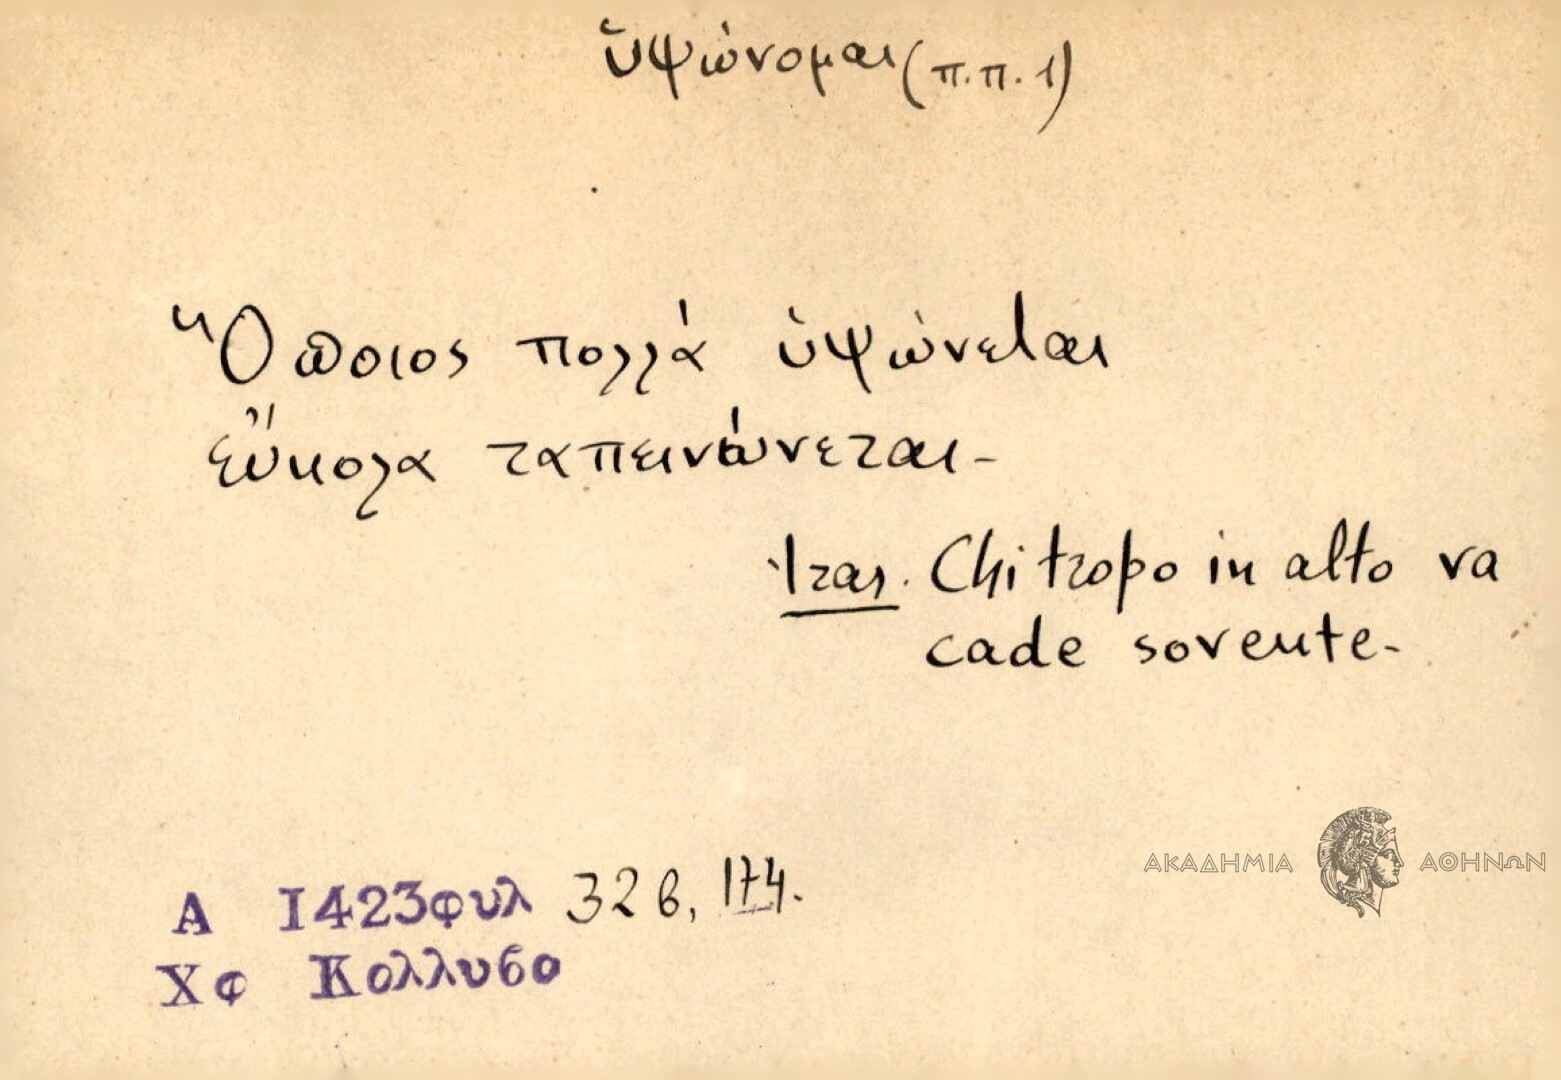 ὑψώνομαι (π.π. 1)
"Οποιος πολλὰ ὑψώνεται
εὔκολα ταπεινώνεται -
Ἰταλ. Chi tropo in alto va
cade sovente -
Α 1423 φυλ 32 β, 174.
Χφ Κολλυβο
ΑΚΑΔΗΜΙΑ ΑΘΗΝΩΝ